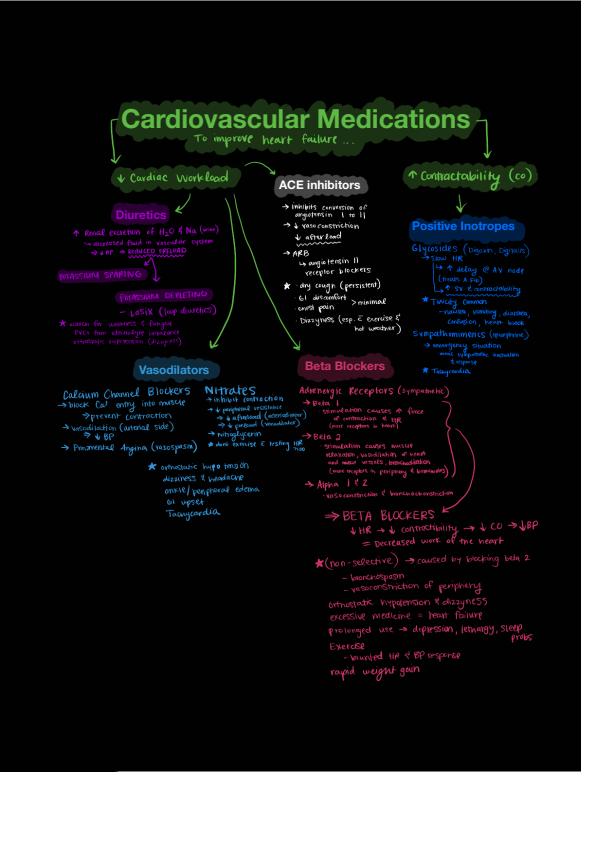 Cardiovascular Medications
To improve heart failure ...
↓ Cardiac Workload
ACE inhibitors
→ Inhibits conversion of
angiotensin I to II
→ ↓ vasoconstriction
↓ afterload
→ ARB
↳ angiotensin II
receptor blockers
★ · dry cough (persistent)
· GI discomfort
· chest pain > minimal
· Dizzyness (esp. c exercise &
hot weather)
↑ Contractability (CO)
Positive Inotropes
Glycosides (Digoxin, Digitalis)
→ slow HR
↳ ↑ delay @ AV node
(treats A Fib)
↳ ↑ SV & contractability
★ Toxicity common
- nausea, vomiting, diarrhea,
confusion, heart block
Sympathomimetics
→ emergency situation
response
★ Tachycardia
Diuretics
↑ Renal excretion of H2O & Na
↳ decreased fluid in vascular system
↳ ↓ BP → REDUCED PRELOAD
POTASSIUM SPARING
POTASSIUM DEPLETING
- LASIX (loop diuretics)
★ watch for weakness & fatigue
PVCs from electrolyte imbalance
orthostatic hypotension
Vasodilators
Calcium Channel Blockers
→ block Ca+ entry into muscle
⇒ prevent contraction
→ vasodilation (arterial side)
↳ ↓ BP
→ Prinzmental Angina (vasospasm)
Nitrates
→ inhibit contraction
→ ↓ peripheral resistance
→ ↓ afterload
→ ↓ preload (venodilates)
→ nitroglycerin
★ dont exercise & resting HR
>100
★ orthostatic hypotension
dizziness & headache
ankle/peripheral edema
GI upset
Tachycardia
Beta Blockers
Adrenergic Receptors (sympathetic)
→ Beta 1
stimulation causes ↑ force
of contraction & HR
(more receptors in heart)
→ Beta 2
stimulation causes muscle
relaxation, vasodilation of
vessels, bronchodilation
(more receptors in periphery & bronchioles)
→ Alpha 1 & 2
· vasoconstriction & bronchoconstriction
⇒ BETA BLOCKERS
↓ HR → ↓ contractibility → ↓ CO → ↓ BP
= Decreased work of the heart
★ (non-selective) → caused by blocking beta 2
- bronchospasm
- vasoconstriction of periphery
orthostatic hypotension & dizzyness
excessive medicine = heart failure
prolonged use → depression, lethargy, sleep
probs
Exercise
- blunted HR & BP response
rapid weight gain